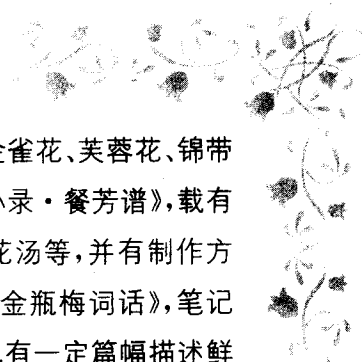 雀花、芙蓉花、锦带
录·餐芳谱》,载有
花汤等,并有制作方
金瓶梅词话》,笔记
有一定篇幅描述鲜